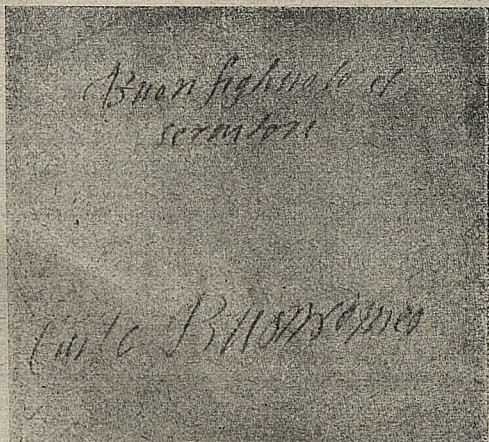 Buon figliuolo et
seruitore
Carlo Buonromeo